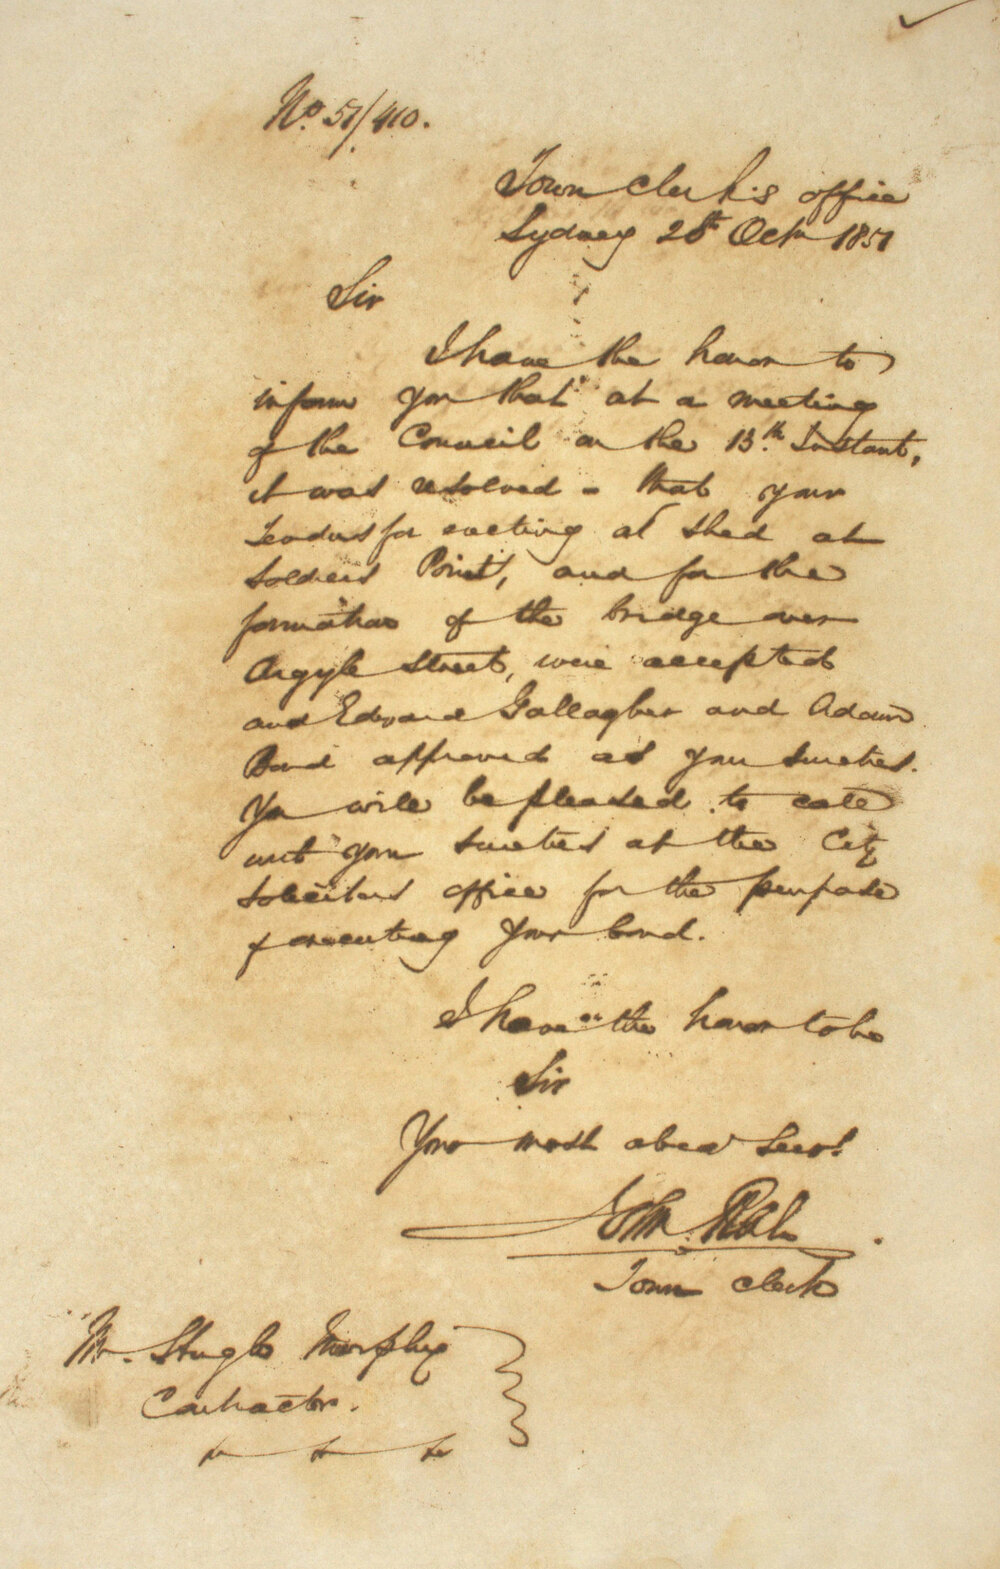 No. 51/410.
Town Clerk's office
Sydney 28th Octr 1851
Sir
I have the honor to
inform you that at a meeting
of the Council on the 13th Instant,
it was resolved - that your
Tenders for erecting a shed at
Soldiers Point, and for the
formation of the bridge over
Argyle Street, were accepted
and Edward Gallagher and Adam
Bond approved as your sureties.
You will be pleased to call
with your sureties at the City
Solicitors office for the purpose
of executing your bond.
I have the honor to be
Sir
Your most obed Servt
John
Town Clerk
Mr. Murphy
Contractor.